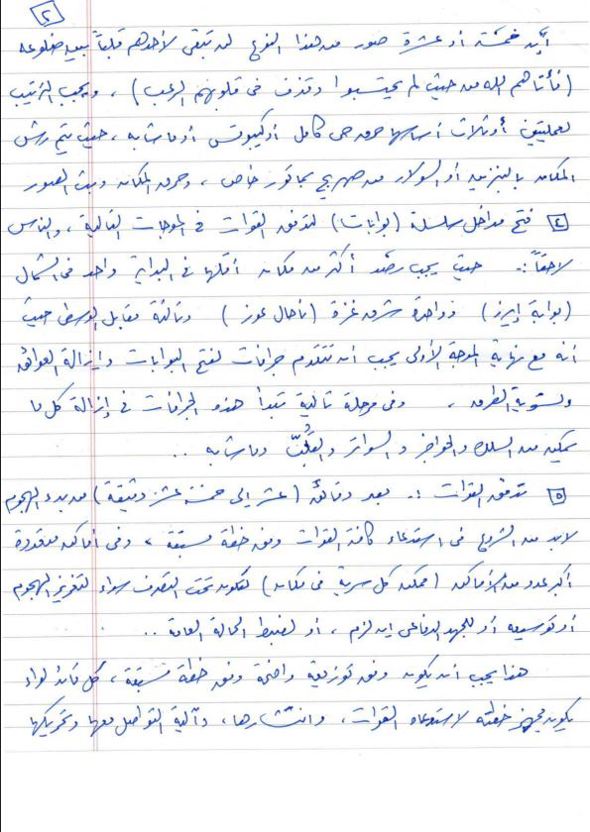 ٢
أيّة خمسة أو عشرة صور من هذا النوع لن تبقى لأحدهم قلباً بين ضلوعه
(فأتاهم الله من حيث لم يحتسبوا وقذف في قلوبهم الرعب) ، ويجب الترتيب
لعمليتين أو ثلاث أساسها حرق حي كامل أو كيبوتس أو ما شابه ، حيث يتم رش
المكان بالبنزين أو السولار من صهريج بماتور خاص ، وحرق المكان وبث الصور
٤ فتح مداخل سلسلة (بوابات) لتدفق القوات في الموجات التالية ، والناس
لاحقاً :- حيث يجب رصد أكثر من مكان أقلها في البداية واحد في الشمال
(بوابة إيرز) وواحدة شرق غزة (ناحال عوز) وثالثة مقابل الوسطى حيث
أنه مع نهاية الموجة الأولى يجب أن تتقدم جرافات لفتح البوابات وإزالة العوائق
وتسوية الطرق ، وفي مرحلة تالية تبدأ هذه الجرافات في إزالة كل ما
يمكن من السلك والحواجز والسواتر وما شابه ..
٥ تدفق القوات :- بعد دقائق (عشر إلى خمسة عشر دقيقة) من بدء الهجوم
لابد من الشروع في استدعاء كافة القوات وفق خطة مسبقة ، وفي أماكن معقودة
أكبر عدد من الأماكن (ممكن كل سرية في مكان) لتكون تحت التصرف سواء لتعزيز الهجوم
أو توسيعه أو للجهد الدفاعي إن لزم ، أو لضبط الحالة العامة ..
هذا يجب أن يكون وفق توزيعة واضحة وفق خطة مسبقة ، كل قائد لواء
يكون مجهز خطته لاستدعاء القوات ، وانتشارها ، وآلية التواصل معها وتحريكها